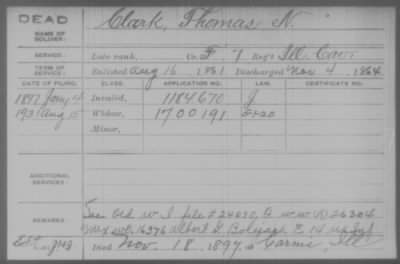 DEAD
NAME OF SOLDIER:
Clark, Thomas N.
SERVICE:
Late rank, Co. F, 7 Reg't Ill. Cav.
TERM OF SERVICE:
Enlisted Aug 16, 1861 Discharged Nov 4, 1864
DATE OF FILING. CLASS. APPLICATION NO. LAW. CERTIFICATE NO.
1897 Jany 4 Invalid, 1184670
1931 Aug 15 Widow, 1700191
Minor,
ADDITIONAL SERVICES:
REMARKS:
See Old w. I file # 24070, O w.w.
Mex w.O. 16376 Albert E 14
Died Nov. 18, 1897, in Carmi, Ill